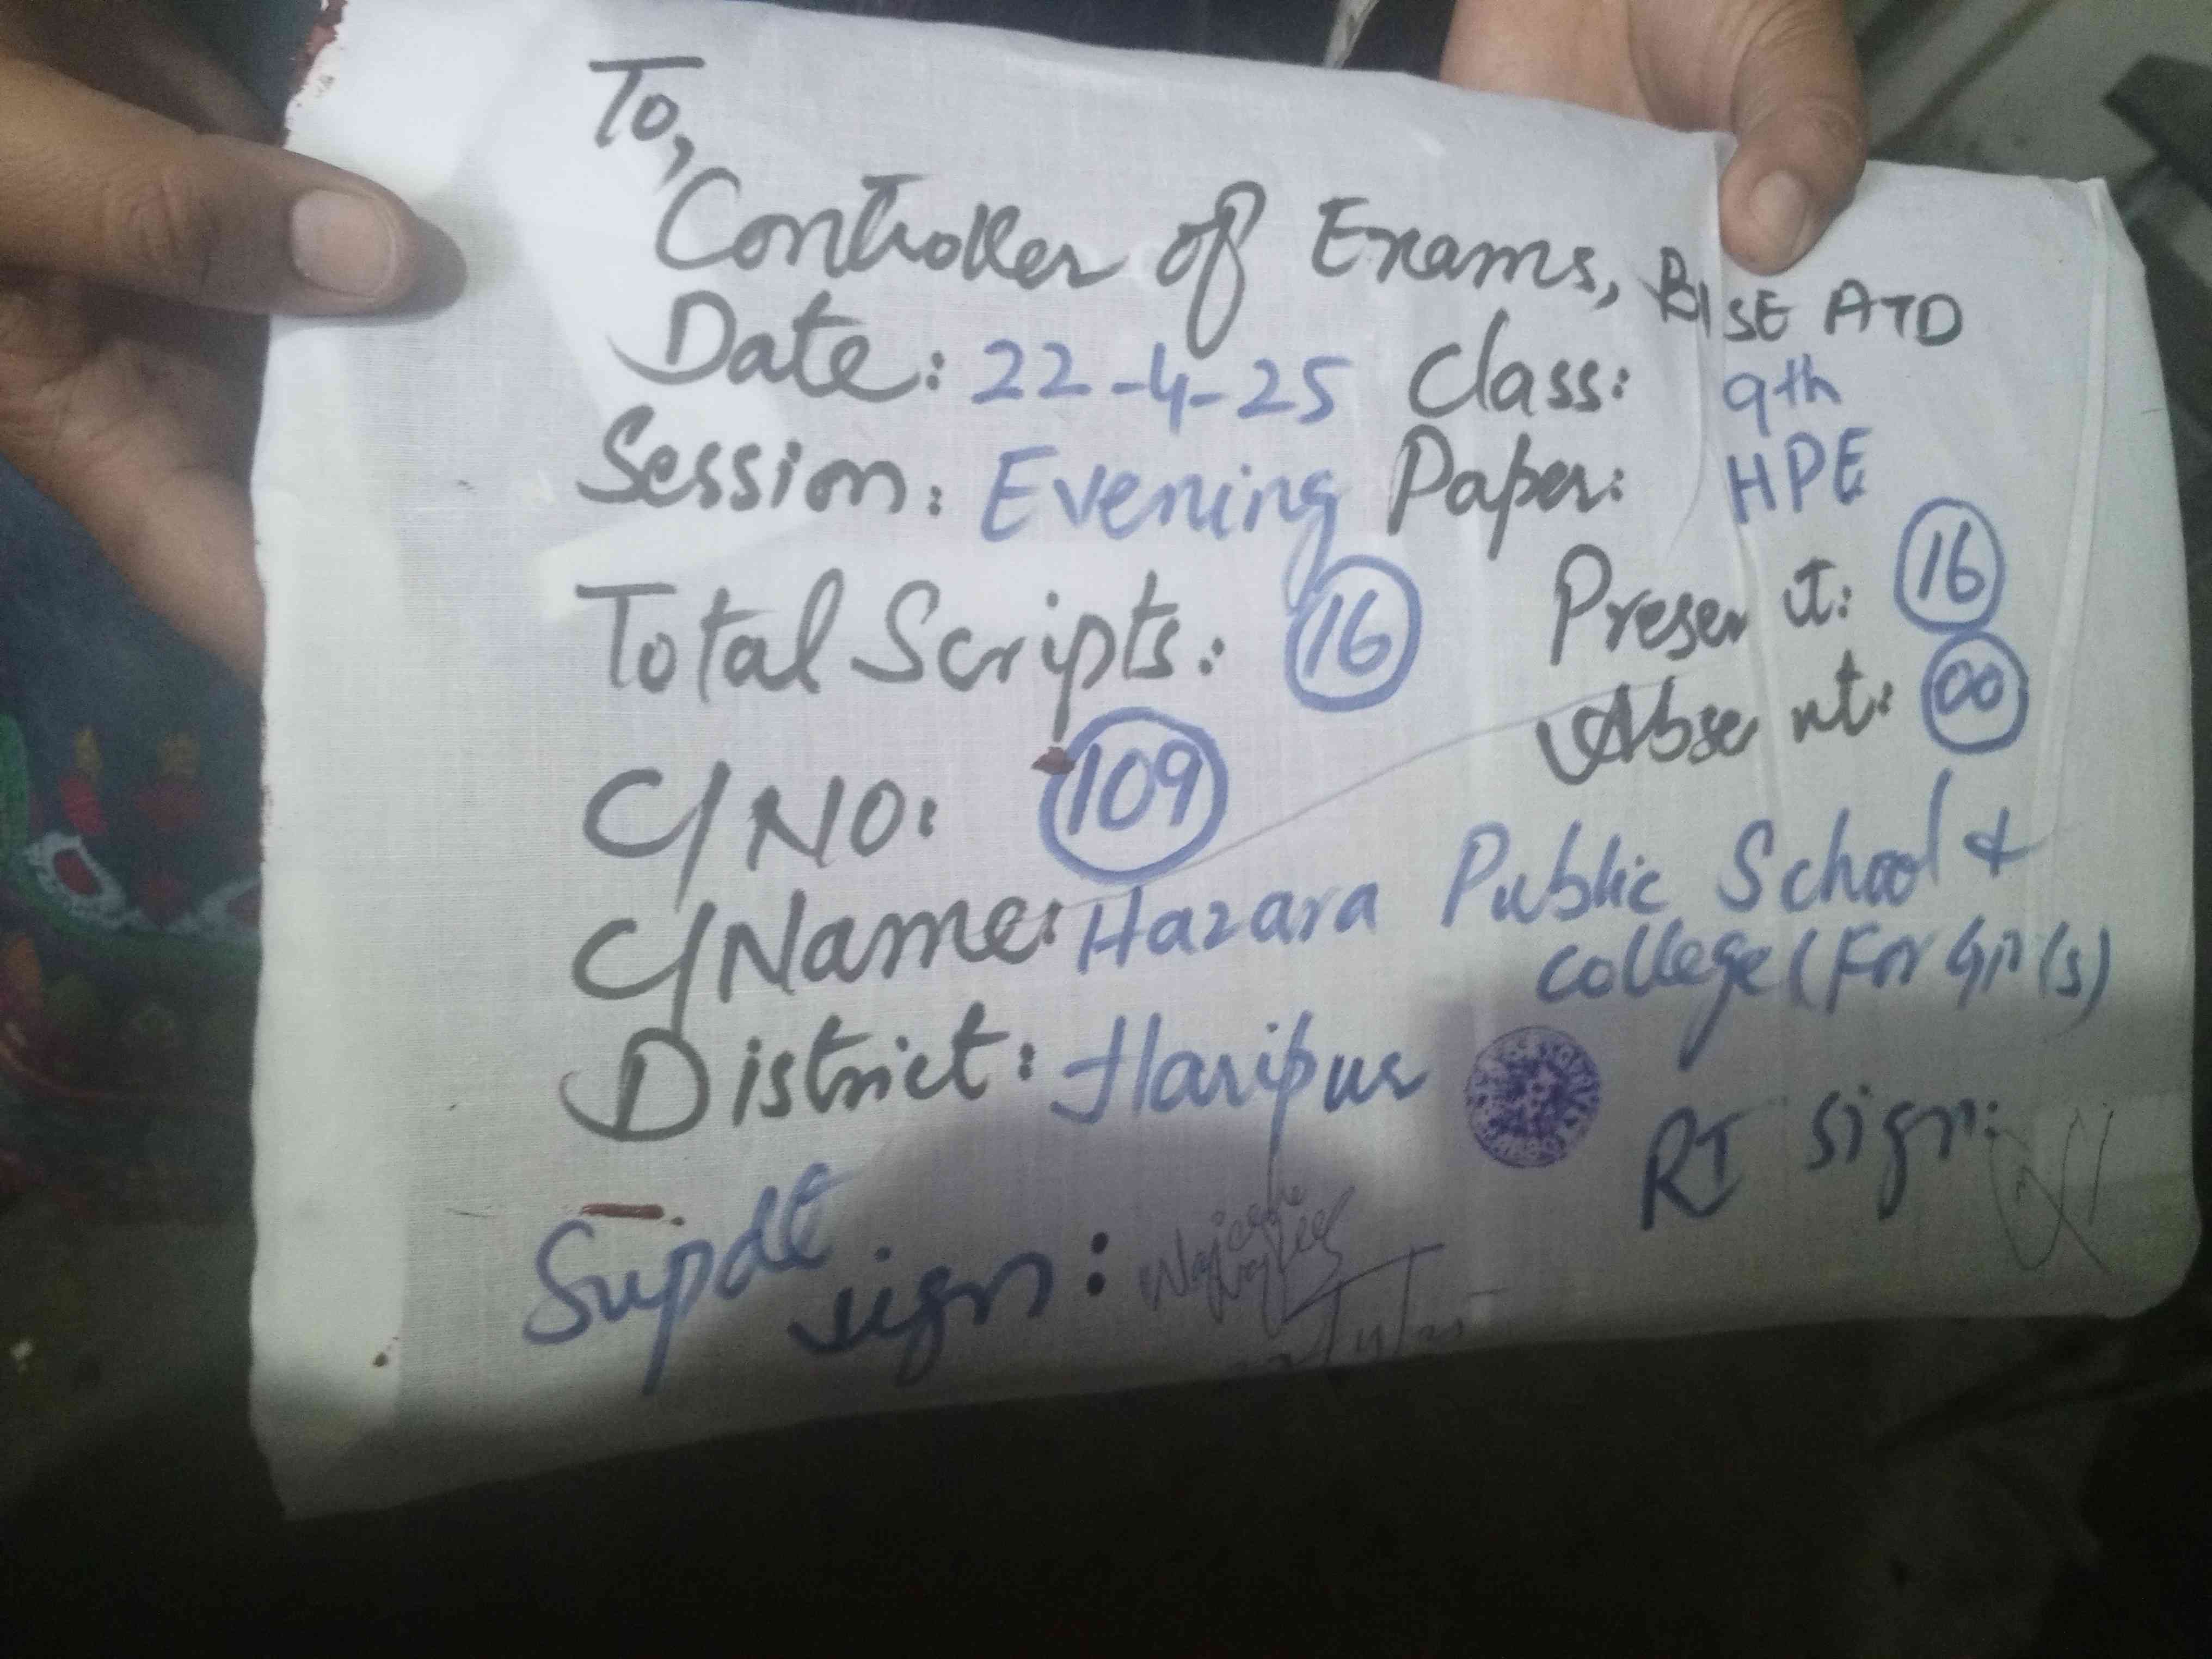 To,
Controller of Exams, BISE ATD
Date: 22-4-25 Class: 9th
Session: Evening Paper: HPE
Total Scripts: 16 Present: 16
Absent: 00
C/NO: 109
C/Name: Hazara Public School &
college (For Girls)
District: Haripur
RI sign:
Supdt
sign: